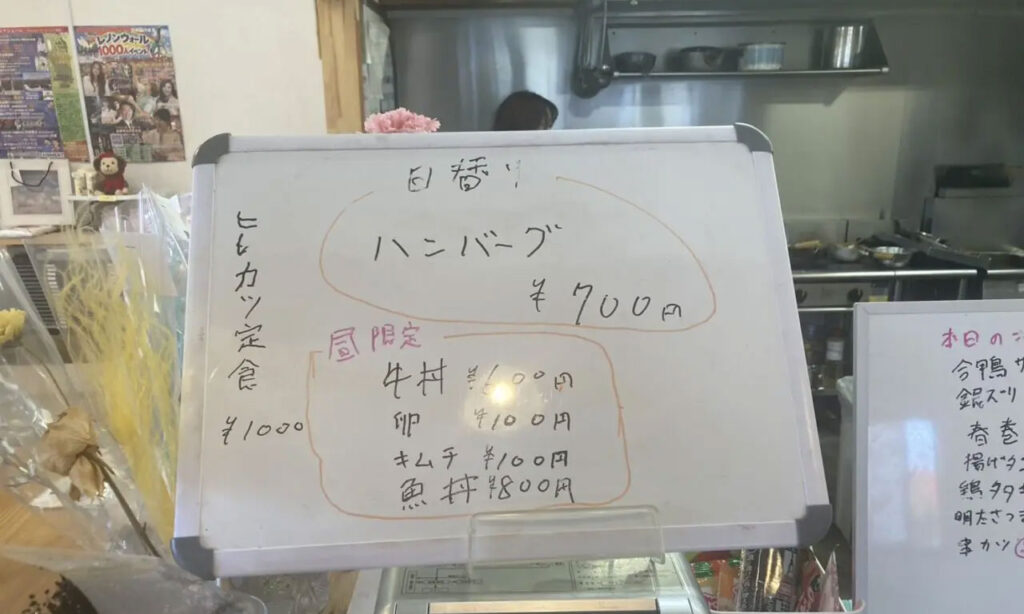 日替り
ハンバーグ
¥700円
ヒレカツ定食
¥1000
昼限定
牛丼 ¥600円
卵 ¥100円
キムチ ¥100円
魚丼 ¥800円
レノンウォール
1000人イベント
本日の
合鴨
銀ズリ
春巻
揚げタコ
鶏タタキ
明太さつま
串カツ